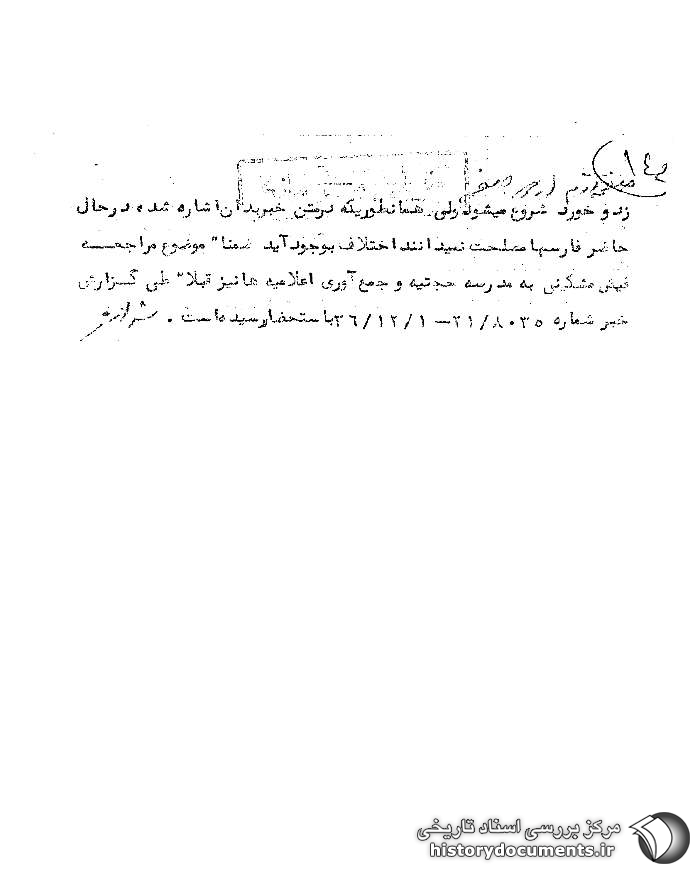 زد و خورد شروع میشود ولی همانطوریکه درمتن خبربدان اشاره شده درحال
حاضر فارسها مصلحت نمیدانند اختلاف بوجود آید ضمنا" موضوع مراجعــه
فیض مشکینی به مدرسه حجتیه و جمع آوری اعلامیه ها نیز قبلا" طی گــزارش
خبر شماره ۲۱/۸۰۳۵ – ۳۶/۱۲/۱ باستحضار رسیده است .
مرکز بررسی اسناد تاریخی
historydocuments.ir